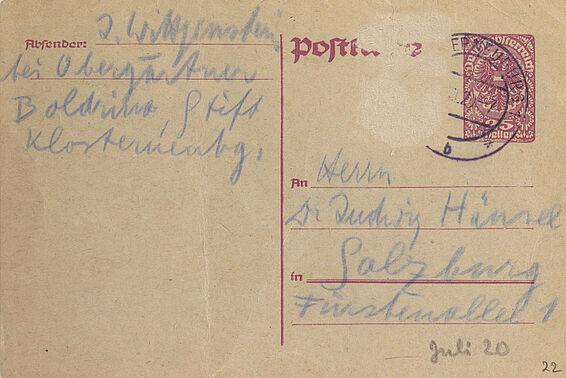 Absender: L. Wittgenstein
bei Obergärtner
Boldrino, Stift
Klosterneubg.
Postkarte
Deutschösterreich
25
Heller
b
An Herrn
Dr Ludwig Hänsel
in Salzburg
Fürstenallee 1
Juli 20
22